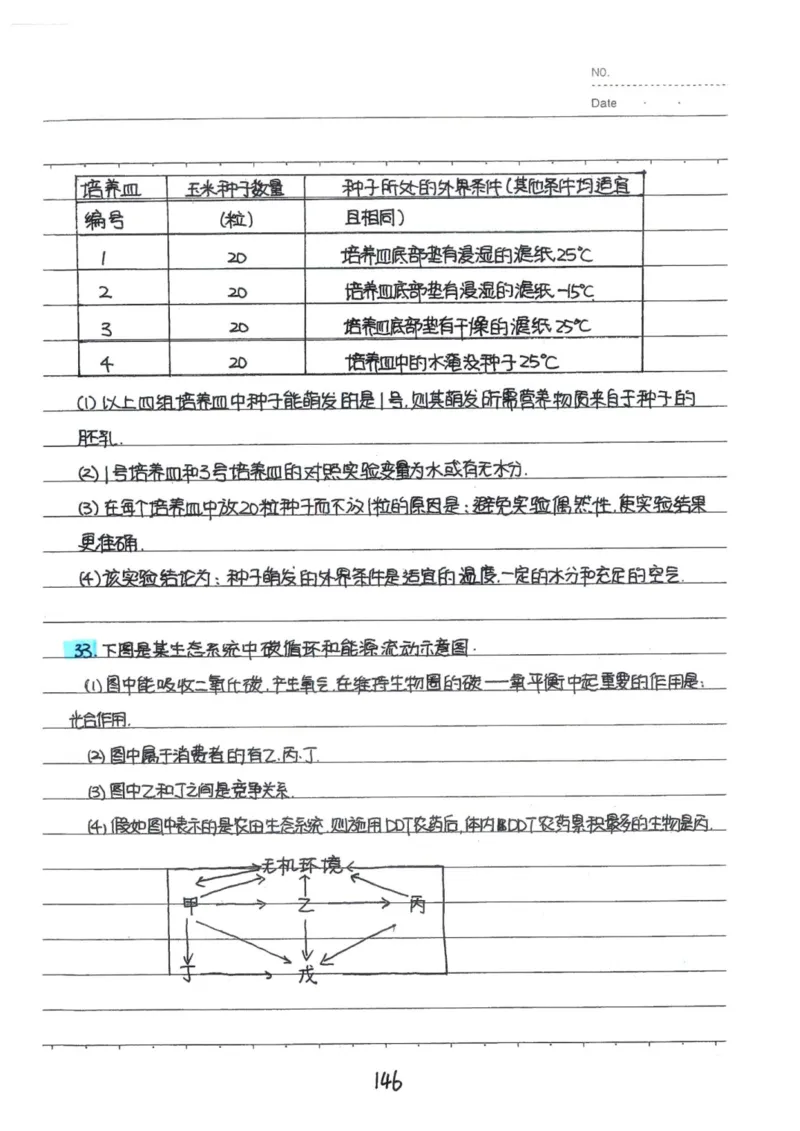 NO.
Date
培养皿 玉米种子数量 种子所处的外界条件(其他条件均适宜
编号 (粒) 且相同)
1 20 培养皿底部垫有浸湿的滤纸,25℃
2 20 培养皿底部垫有浸湿的滤纸,-15℃
3 20 培养皿底部垫有干燥的滤纸,25℃
4 20 培养皿中的水淹没种子25℃
(1)以上四组培养皿中种子能萌发的是1号,则其萌发所需营养物质来自于种子的
胚乳.
(2)1号培养皿和3号培养皿的对照实验变量为水或有无水分.
(3)在每个培养皿中放20粒种子而不放1粒的原因是:避免实验偶然性,使实验结果
更准确.
(4)该实验结论为:种子萌发的外界条件是适宜的温度,一定的水分和充足的空气.
33.下图是某生态系统中碳循环和能源流动示意图.
(1)图中能吸收二氧化碳,产生氧气,在维持生物圈的碳一氧平衡中起重要的作用是:
光合作用.
(2)图中属于消费者的有乙.丙.丁.
(3)图中乙和丁之间是竞争关系.
(4)假如图中表示的是农田生态系统,则施用DDT农药后,体内DDT农药累积最多的生物是丙.
无机环境
甲 乙 丙
丁 戊
146